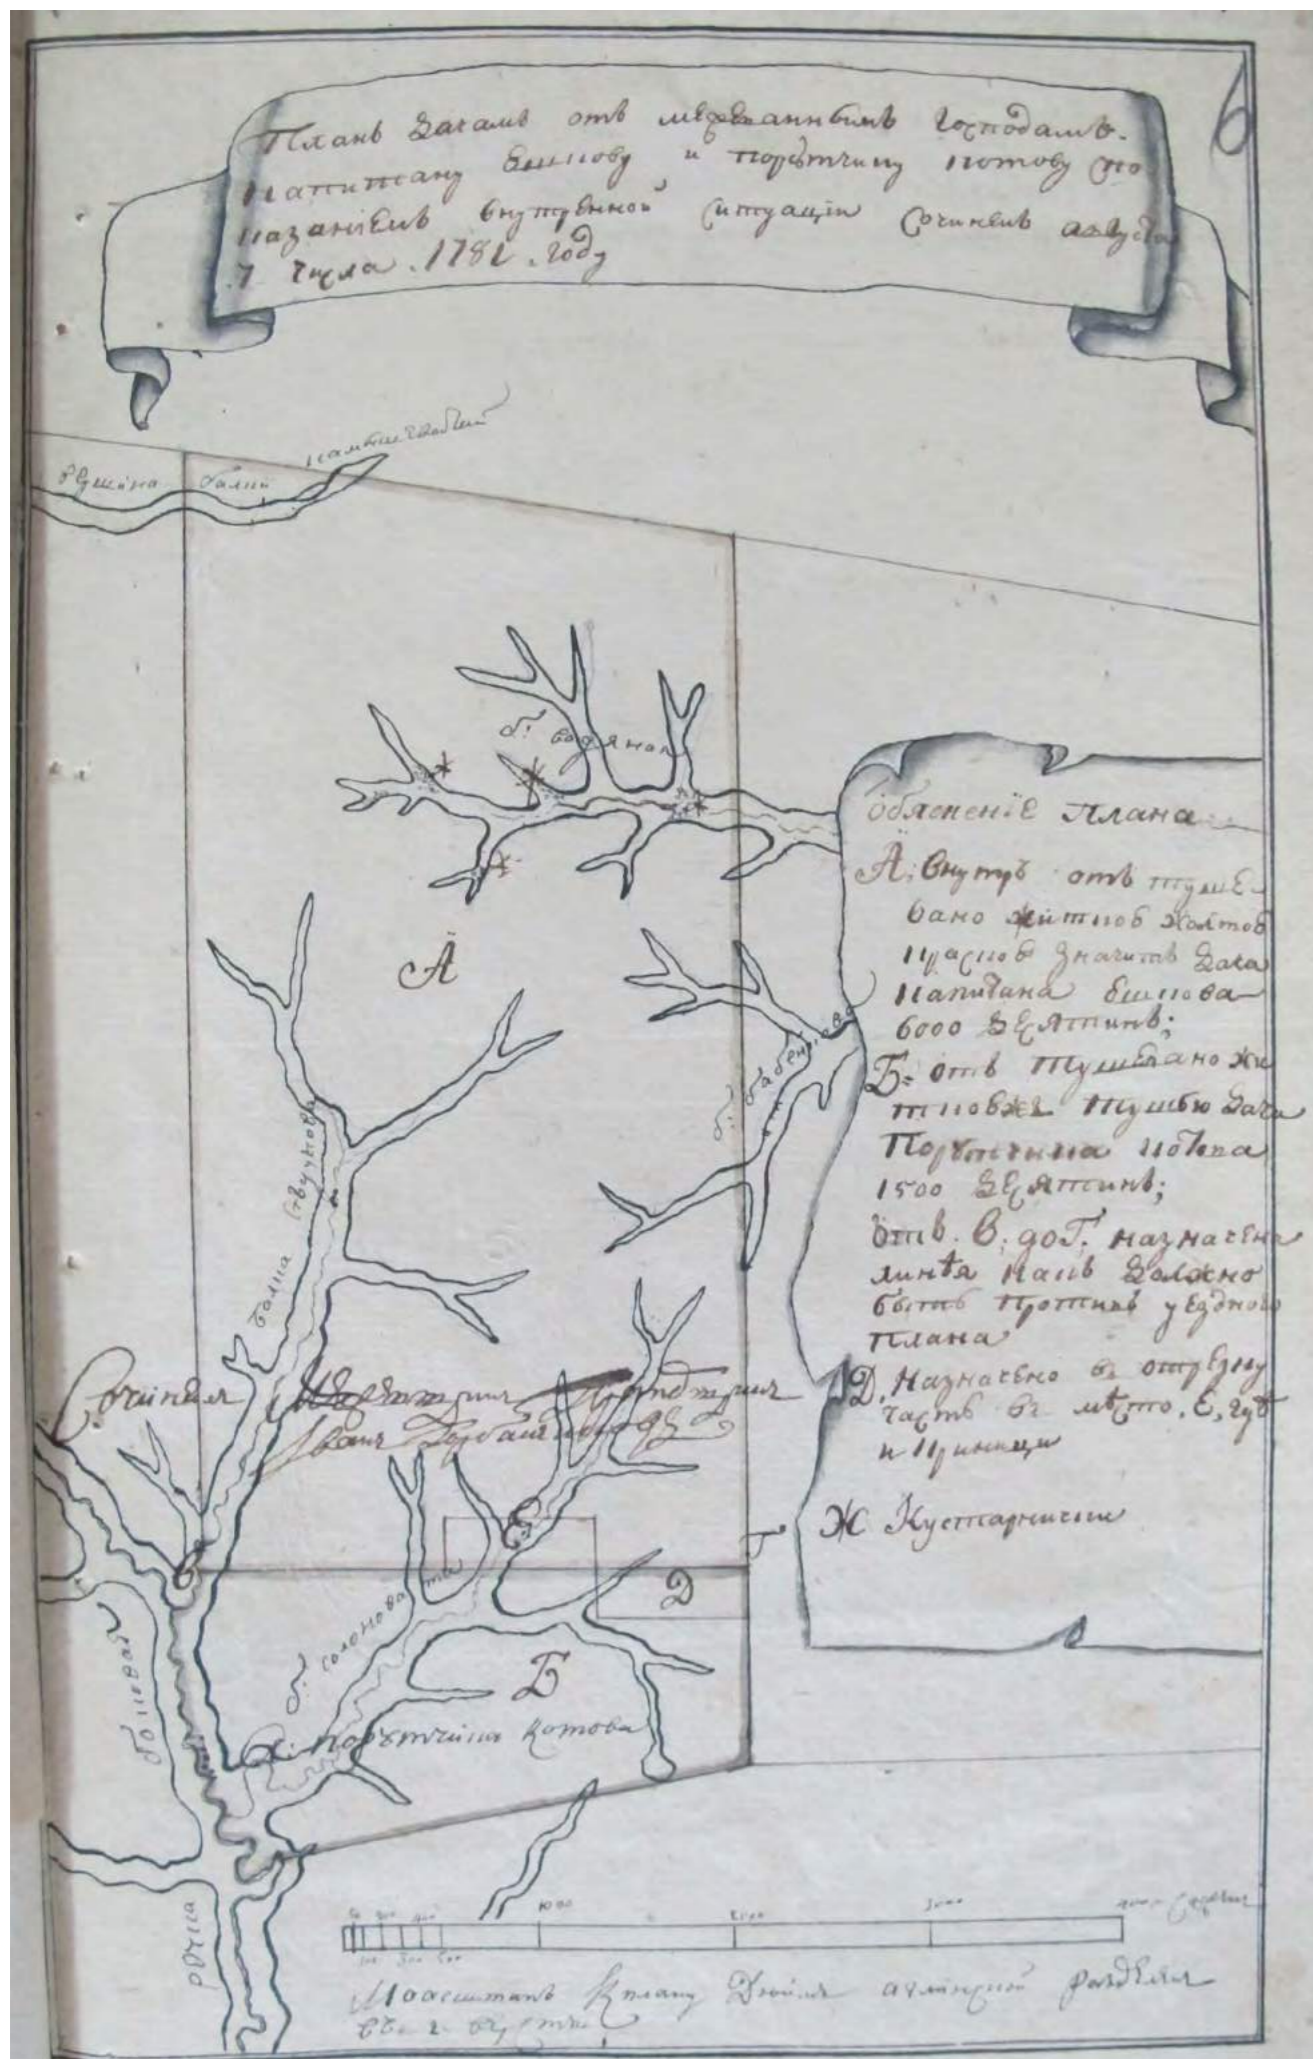 6
Планъ дачамъ отъ межеваннымъ господамъ.
капитану Ешкову и порѣтчику котову спо
казаніемъ внутренной ситуаціи сочиненъ августа
7 числа. 1781. году
балки
А
б. водяная
б. бабенкова
балка
Сочинялъ
Иванъ
б. солоновата
Е
В
Г
Д
Б
д. порѣтчика Котова
боковой
рѣчка
Обясненіе плана
А. внутръ отъ туше-
вано житкоб жолтоб
краскоб значитъ дача
капитана Ешкова
6000 десятинъ;
Б. отъ тушевано жи
ткобже тушью дача
Порѣтчика котова
1500 десятинъ;
отъ. В. до Г. назначена
линѣя какъ должно
быть противъ уездного
плана
Д. назначено въ отрезку
часть въ мѣсто. Е,
и криницы
Ж Кустарники
50 200 400 1000 2000 3000 4000 сажень
100 300 500
Маасштапъ к плану Дюймъ аглинской разделенъ